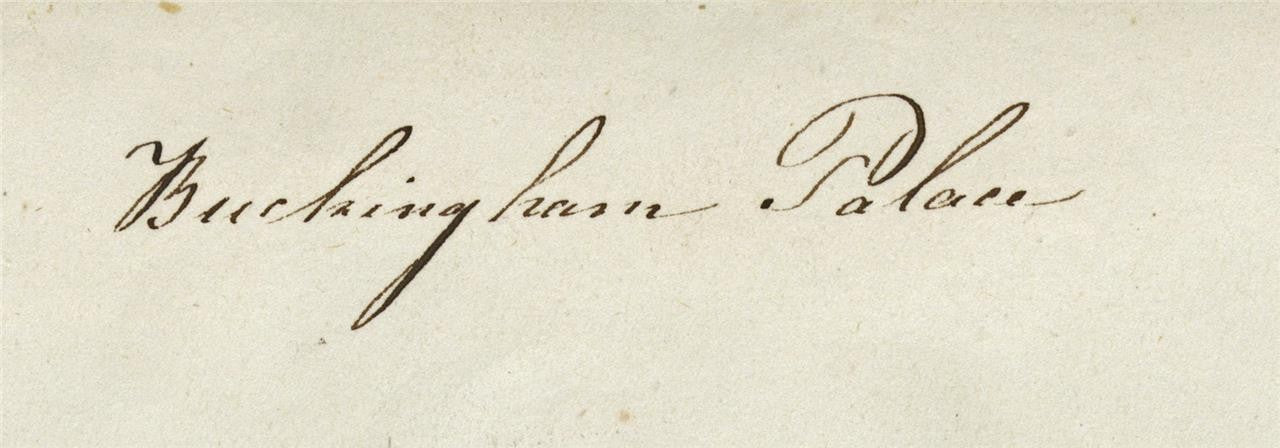 Buckingham Palace